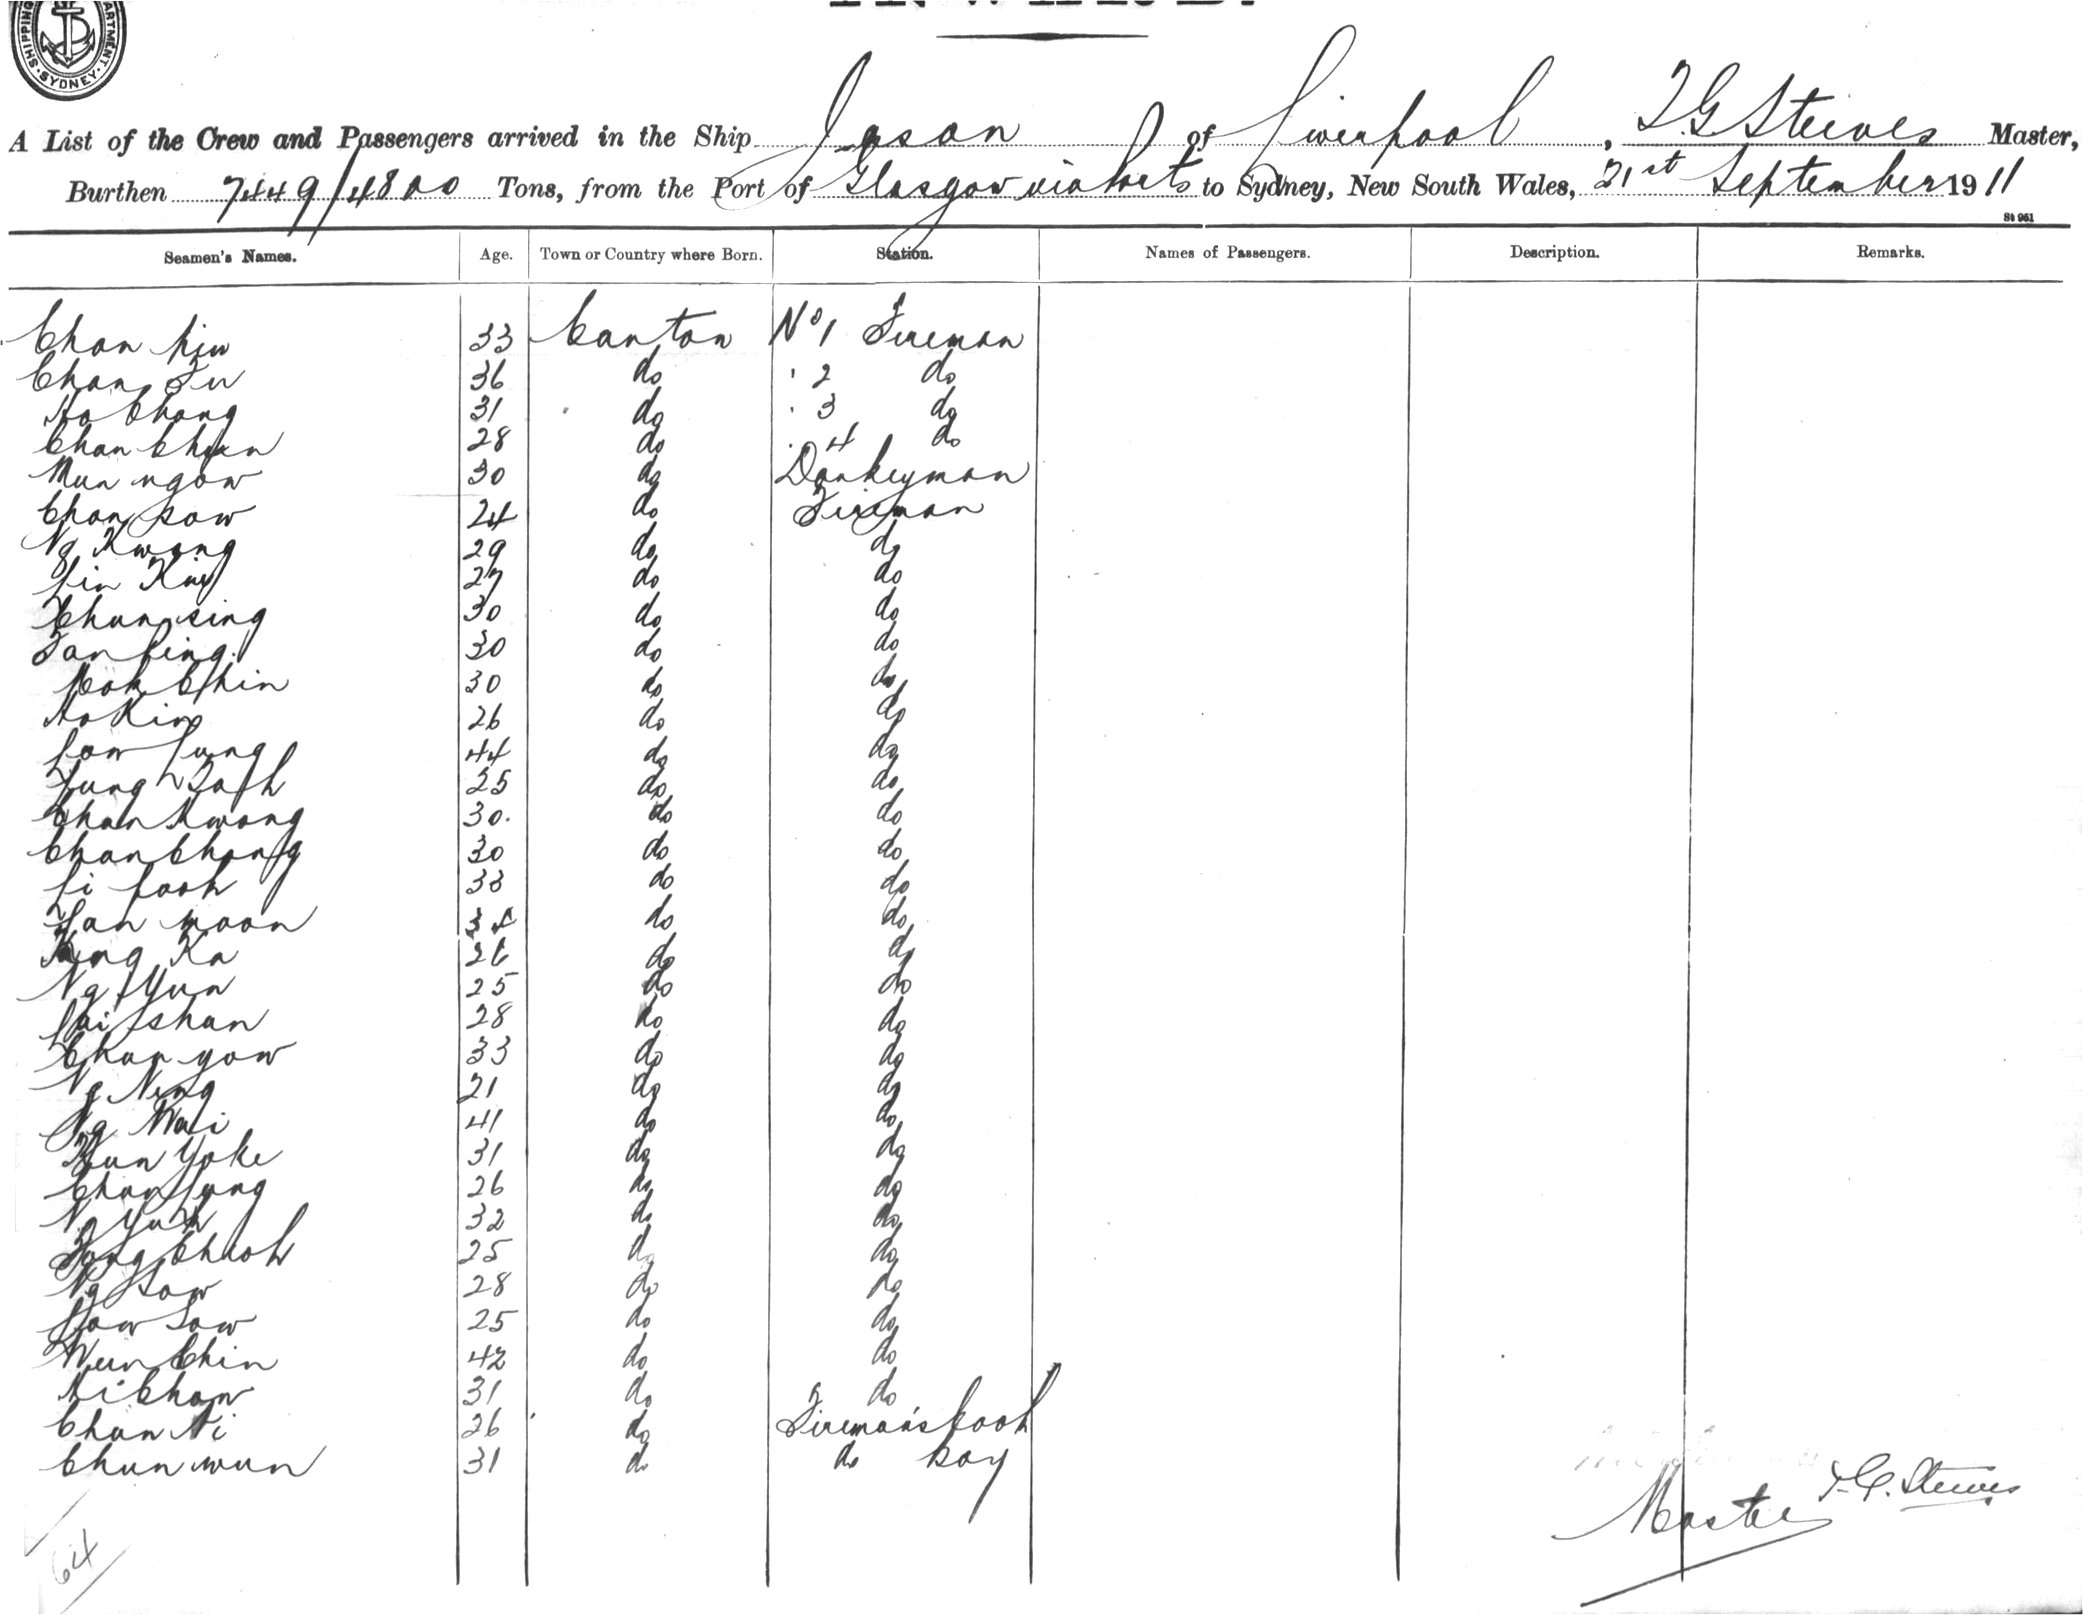 SHIPPING DEPARTMENT. SYDNEY.
A List of the Crew and Passengers arrived in the Ship Jason of Liverpool, T G Steeves Master,
Burthen 7449/4800 Tons, from the Port of Glasgow via Ports to Sydney, New South Wales, 21st September 1911
St 961
Seamen's Names. Age. Town or Country where Born. Station. Names of Passengers. Description. Remarks.
Chan 33 Canton No 1 Fireman
Chan Fu 36 do " 2 do
Ho Chong 31 do " 3 do
Chan Chun 28 do " 4 do
Mun ngow 30 do Donkeyman
Chan Sow 24 do Fireman
Ng Kwong 29 do do
Lin Kay 27 do do
Chung sing 30 do do
Tan Ling 30 do do
Mok Chin 30 do do
Ho King 26 do do
Low Lung 44 do do
Yung 25 do do
Chan Kwong 30. do do
Chan Chong 30 do do
Li Look 33 do do
Yan moon do do
Ka 26 do do
Ng Yun 25 do do
Lai Shun 28 do do
Chan yow 33 do do
Ng Ning 21 do do
Ng Wai 41 do do
Kun Yoke 31 do do
Chan Lung 26 do do
Ng Yuk 32 do do
Tong Chook 25 do do
Ng Sow 28 do do
Low Sow 25 do do
Wun Chin 42 do do
Ni Chow 31 do do
Chun Ni 26 do Fireman's Cook
Chun wun 31 do do boy
T. G. Steeves
Master
64